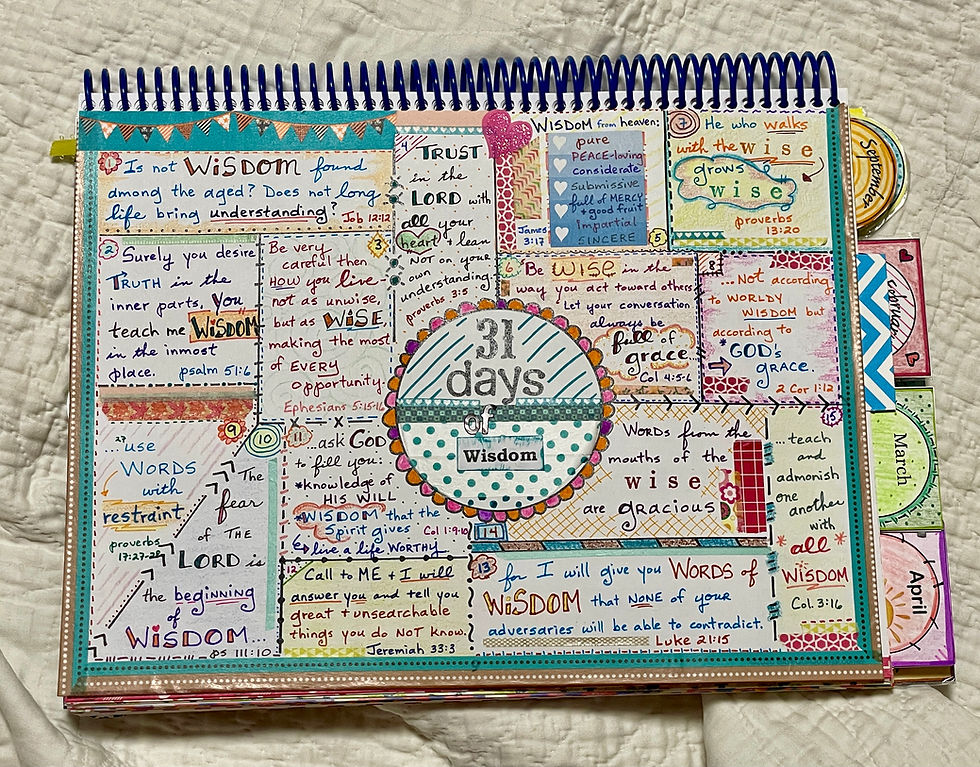 1
Is not WISDOM found
among the aged? Does not long
life bring understanding?
Job 12:12
2
Surely you desire
TRUTH in the
inner parts, you
teach me WISDOM
in the inmost
place. psalm 51:6
3
Be very
careful then
HOW you live-
not as unwise,
but as WISE,
making the most
of EVERY
opportunity.
Ephesians 5:15-16
4
TRUST
in the
LORD with
all your
heart + lean
NOT on your
own
understanding.
proverbs 3:5
WISDOM from heaven:
pure
PEACE-loving
considerate
submissive
full of MERCY
+ good fruit
impartial
SINCERE
James
3:17
5
7
He who walks
with the wise
grows
wise
proverbs
13:20
6
Be WISE in the
way you act toward others.
Let your conversation
always be
full of
grace...
Col 4:5-6
8
...Not according
to WORLDY
WISDOM but
according to
GOD's
GRACE.
2 Cor 1:12
31
days
of
Wisdom
9
27
use
WORDS
with
restraint
proverbs
17:27-28
10
The
fear
of THE
LORD is
the beginning
of
WISDOM...
ps 111:10
11
...ask GOD
to fill you:
*knowledge of
HIS WILL
*WISDOM that the
Spirit gives
Col 1:9-10
live a life WORTHY
12
Call to ME + I will
answer you and tell you
great + unsearchable
things you do NOT know.
Jeremiah 33:3
Words from the
mouths of the
wise
are gracious
14
13
for I will give you WORDS of
WISDOM that NONE of your
adversaries will be able to contradict.
Luke 21:15
15
...teach
and
admonish
one
another
with
*all*
WISDOM
Col. 3:16
September
February
March
April